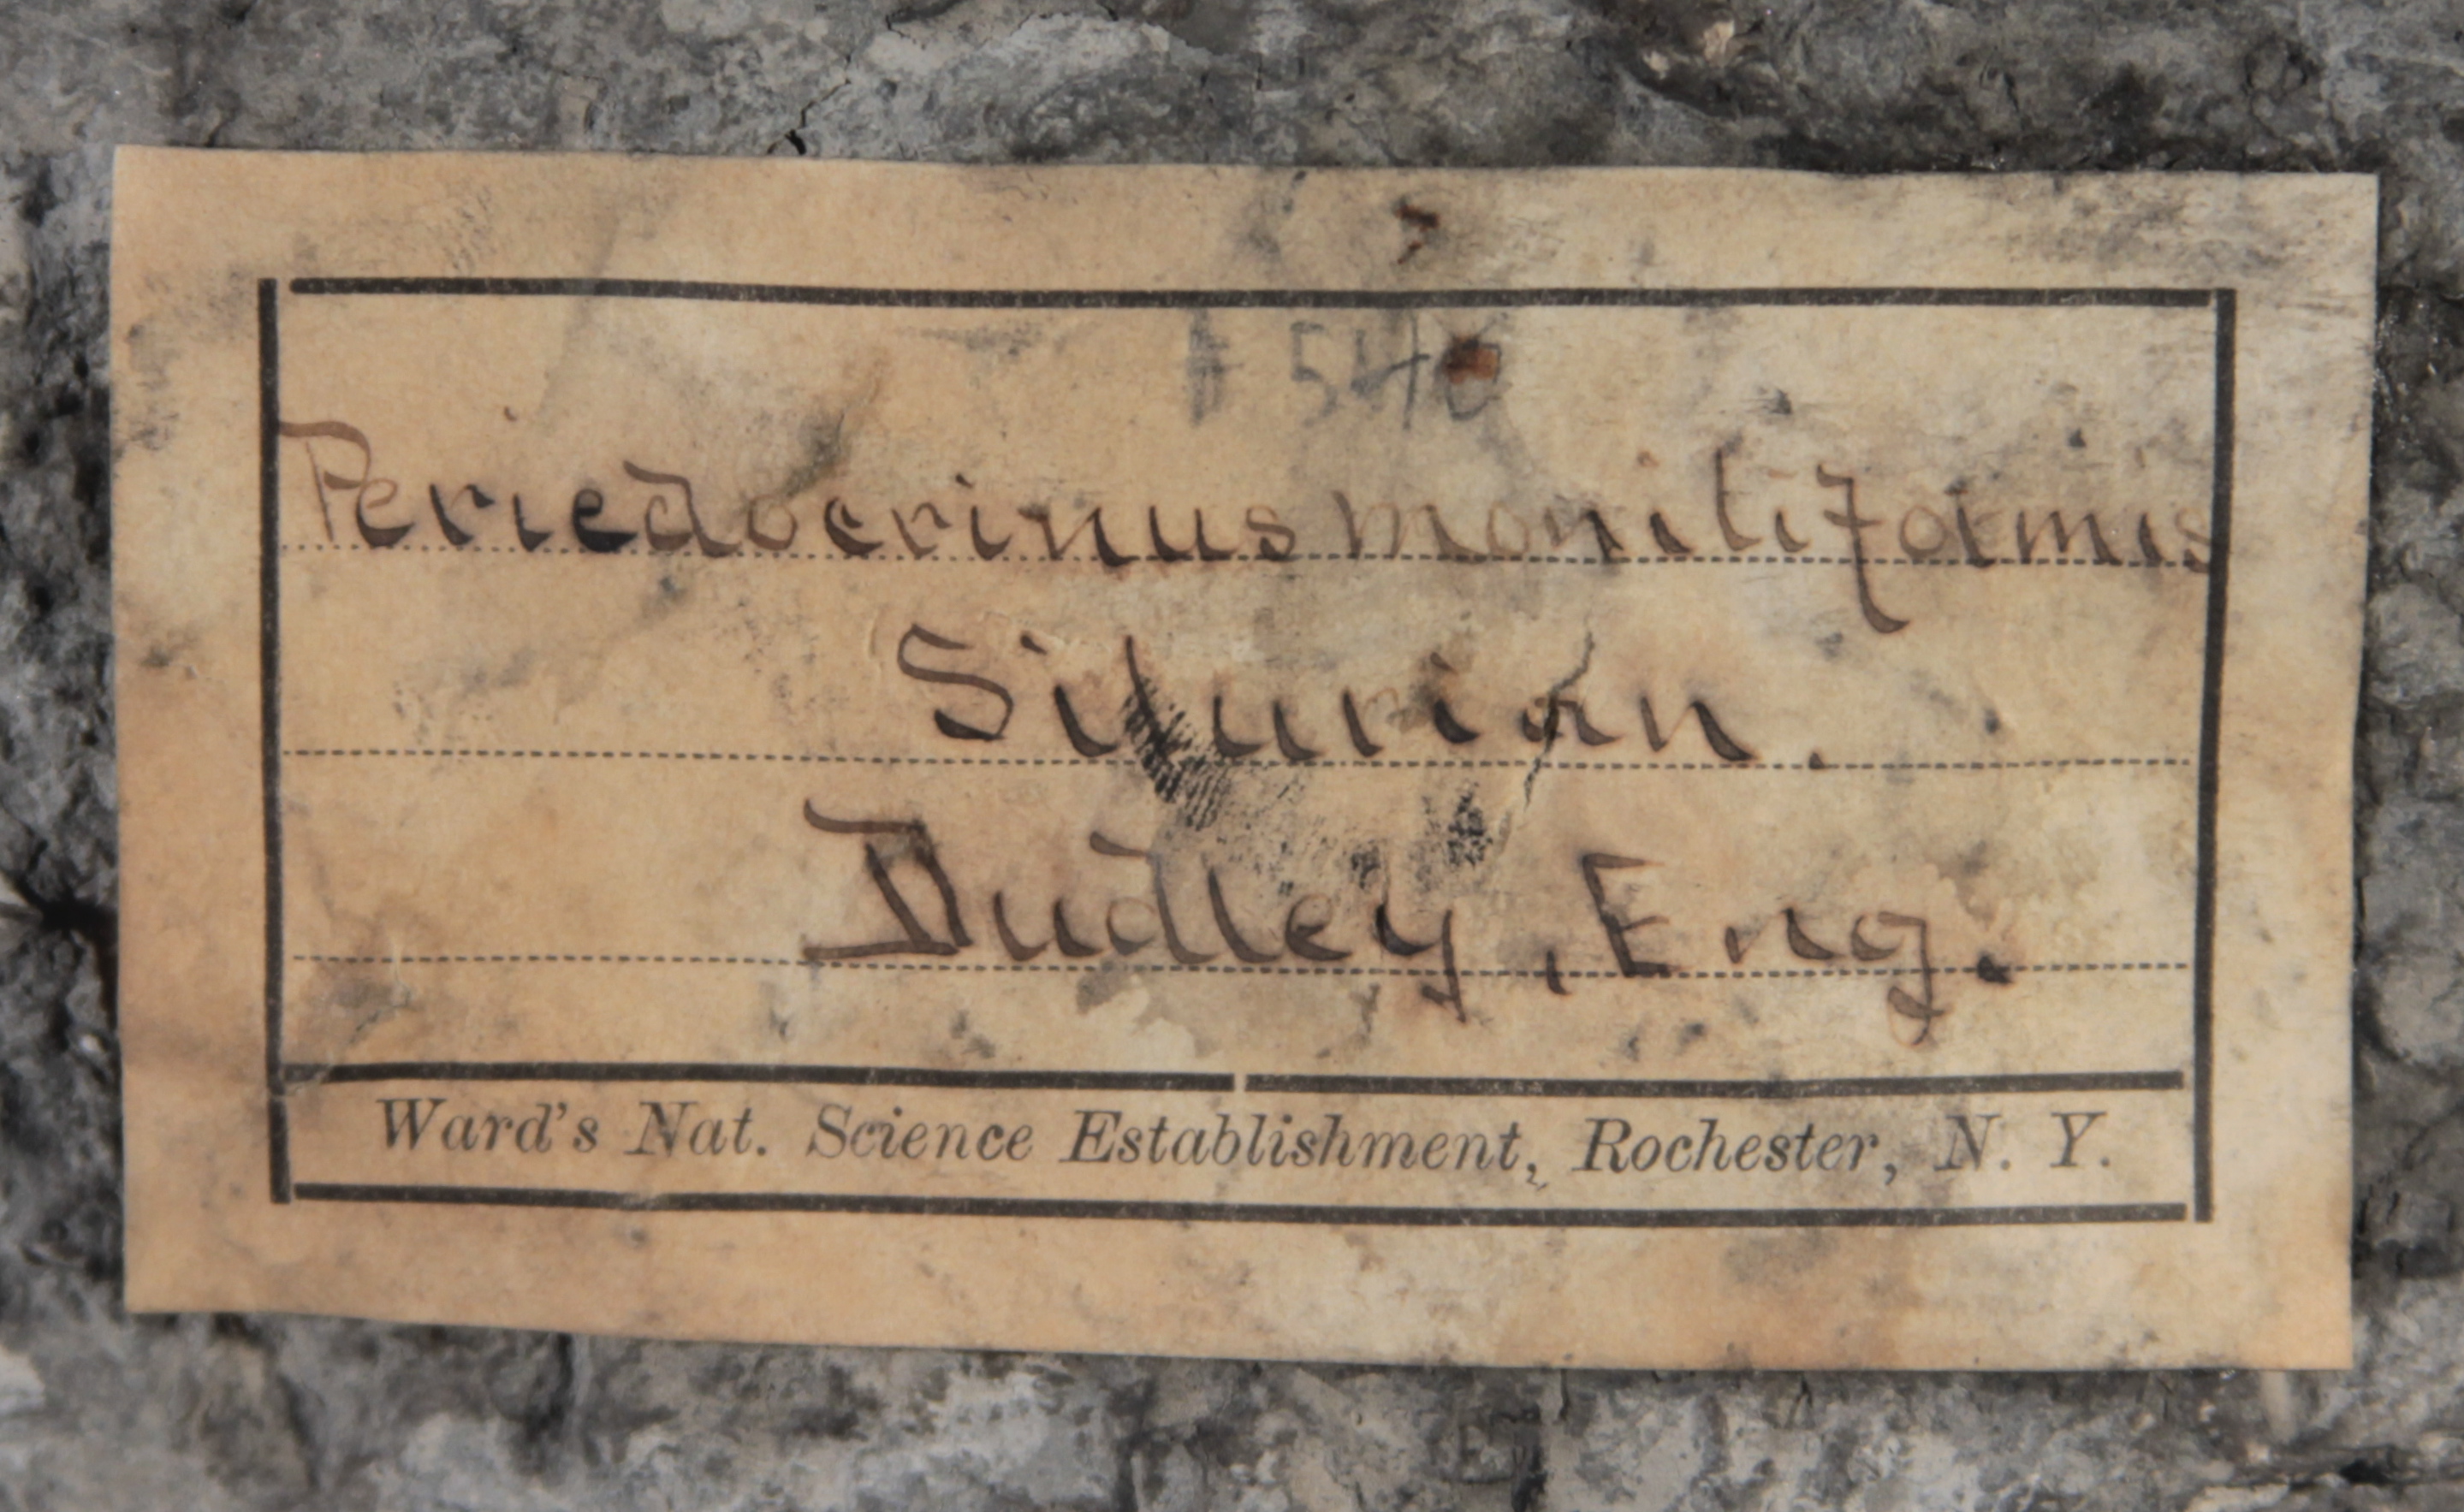 # 540
Periedocrinus moniliformis
Silurian.
Dudley, Eng.
Ward's Nat. Science Establishment, Rochester, N. Y.